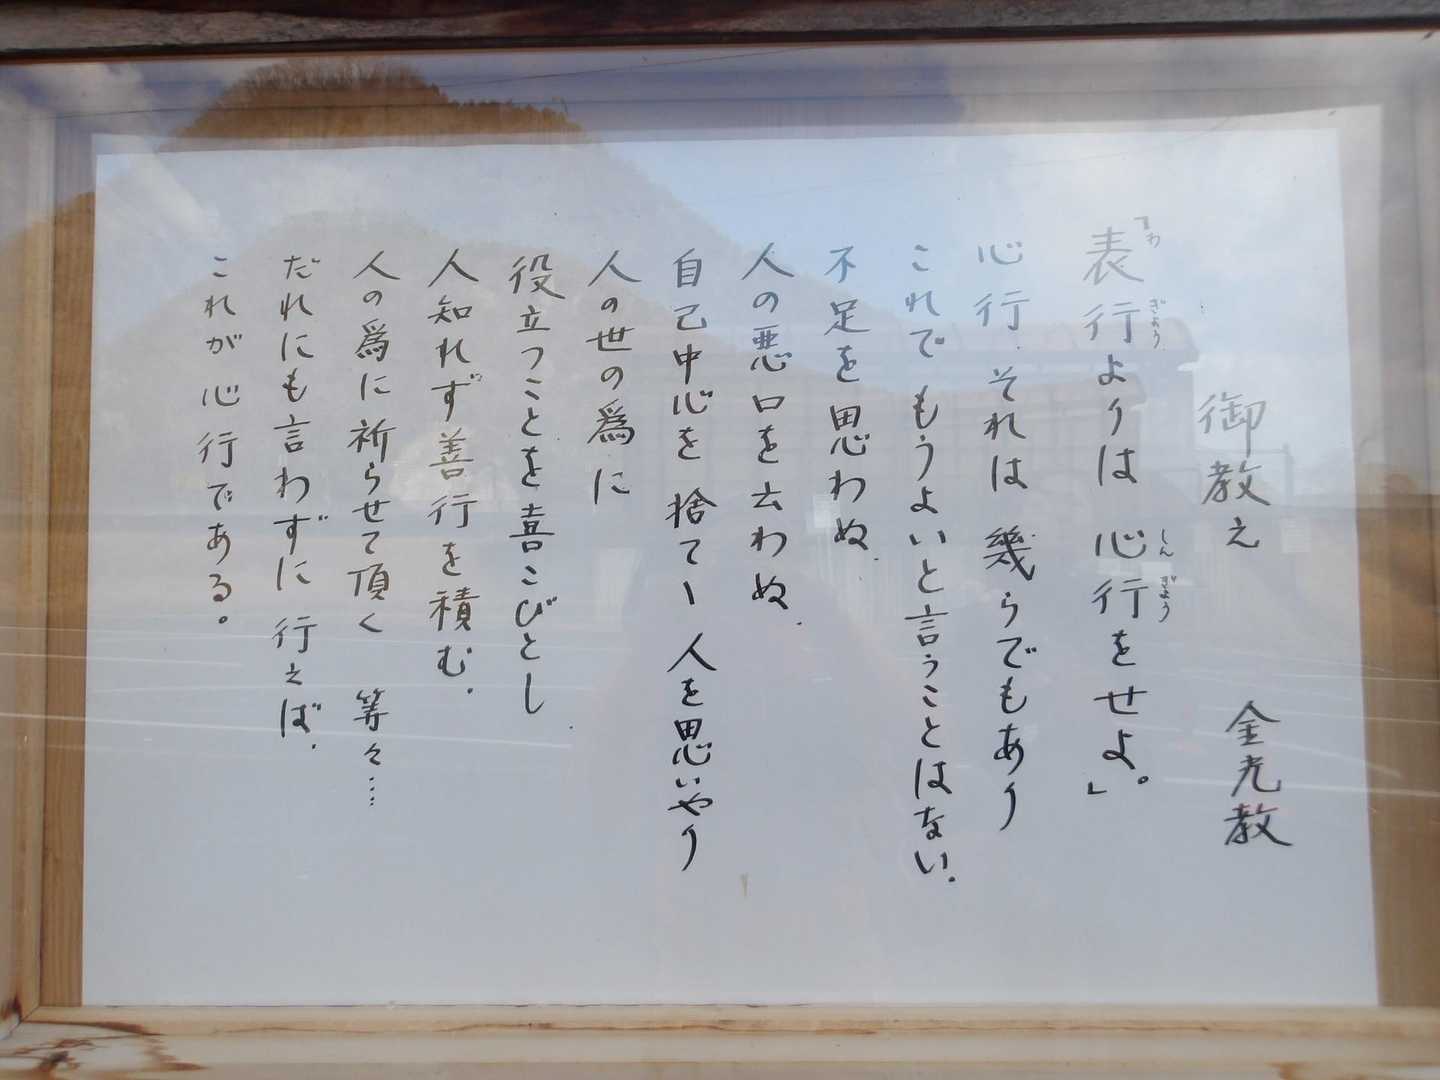 御教え 金光教
「表行よりは心行をせよ。」
わ ぎょう しん ぎょう
心行、それは幾らでもあり
これでもうよいと言うことはない。
不足を思わぬ、
人の悪口を云わぬ、
自己中心を捨てー人を思いやり
人の世の爲に
役立つことを喜こびとし
人知れず善行を積む。
人の爲に祈らせて頂く 等々…
だれにも言わずに行えば、
これが心行である。